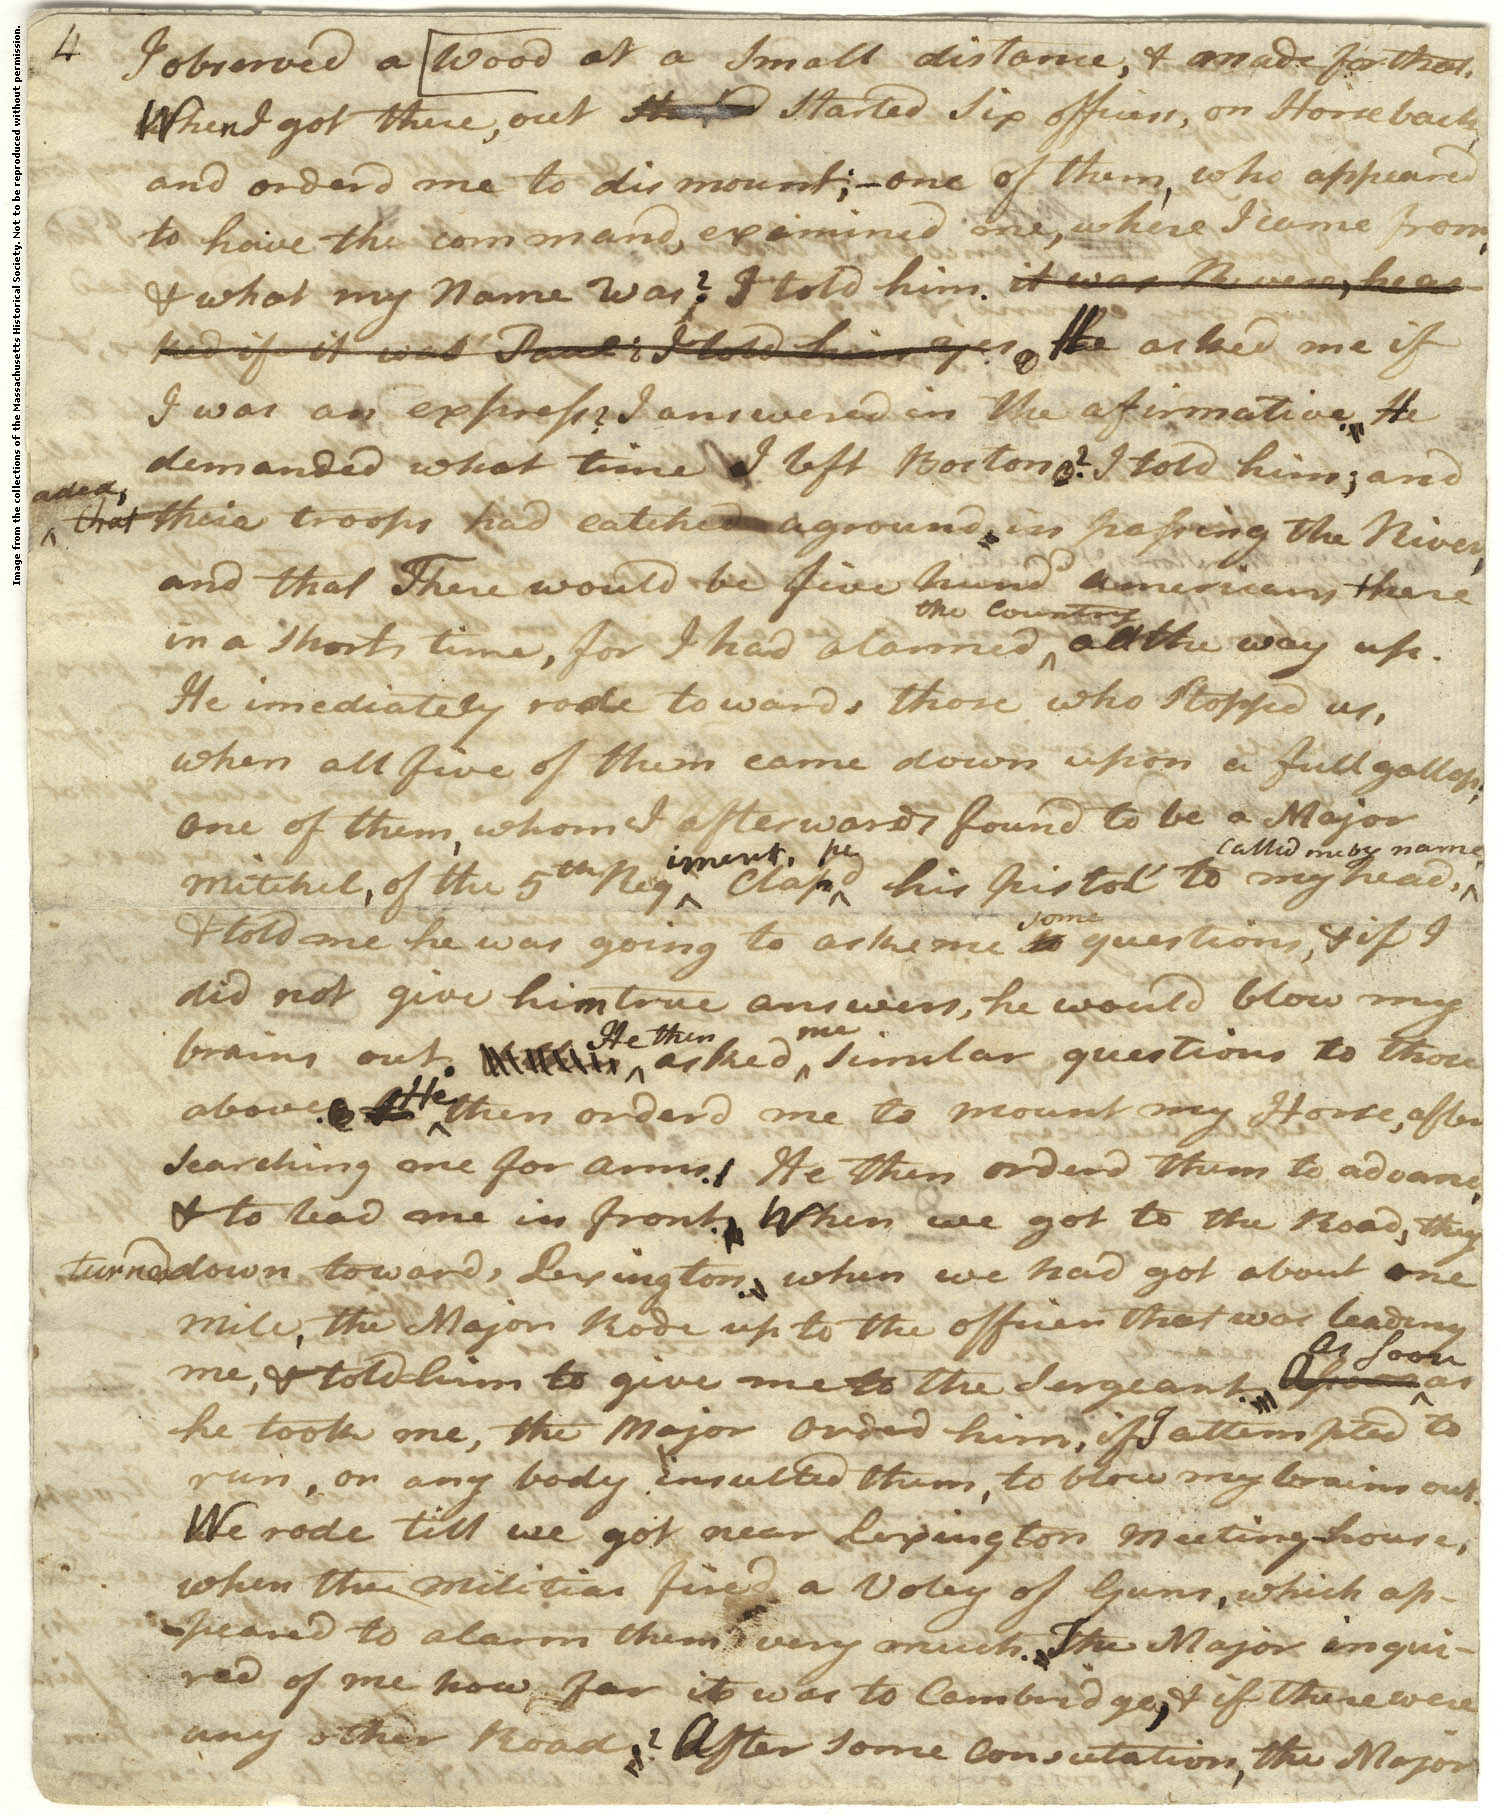 Image from the collections of the Massachusetts Historical Society. Not to be reproduced without permission.
4
I observed a Wood at a Small distance, & made for that.
When I got there, out started Six officers, on Horse back,
and orderd me to dismount;-one of them, who appeared
to have the command, examined me, where I came from,
& what my Name Was? I told him. it was Revere, he as-
ked if it was Paul? I told him yes. He asked me if
I was an express? I answered in the afirmative. He
demanded what time I left Boston? I told him; and
aded,
that their troops had catched aground in passing the River,
and that There would be five hundd Americans there
the Country
in a short time, for I had alarmed all the way up.
He imediately rode towards those who stopped us,
when all five of them came down upon a full gallop;
one of them, whom I afterwards found to be a Major
called me by name,
iment, pe
Mitchel, of the 5th Reg Clapd his pistol to my head,
some
& told me he was going to ask me questions, & if I
did not give him true answers, he would blow my
He then me
brains out. asked similar questions to those
He
above. then orderd me to mount my Horse, after
searching me for arms. He then orderd them to advance,
& to lead me in front. When we got to the Road, they
turned down towards Lexington. when we had got about one
mile, the Major Rode up to the officer that was leading
as Soon
me, & told him to give me to the Sergeant. as
he took me, the Major orderd him, if I attempted to
run, or any body insulted them, to blow my brains out.
We rode till we got near Lexington Meeting-house,
when the Militia fired a Voley of Guns, which ap-
peared to alarm them very much. The Major inqui-
red of me how far it was to Cambridge, & if there were
any other Road? After some consultation, the Major